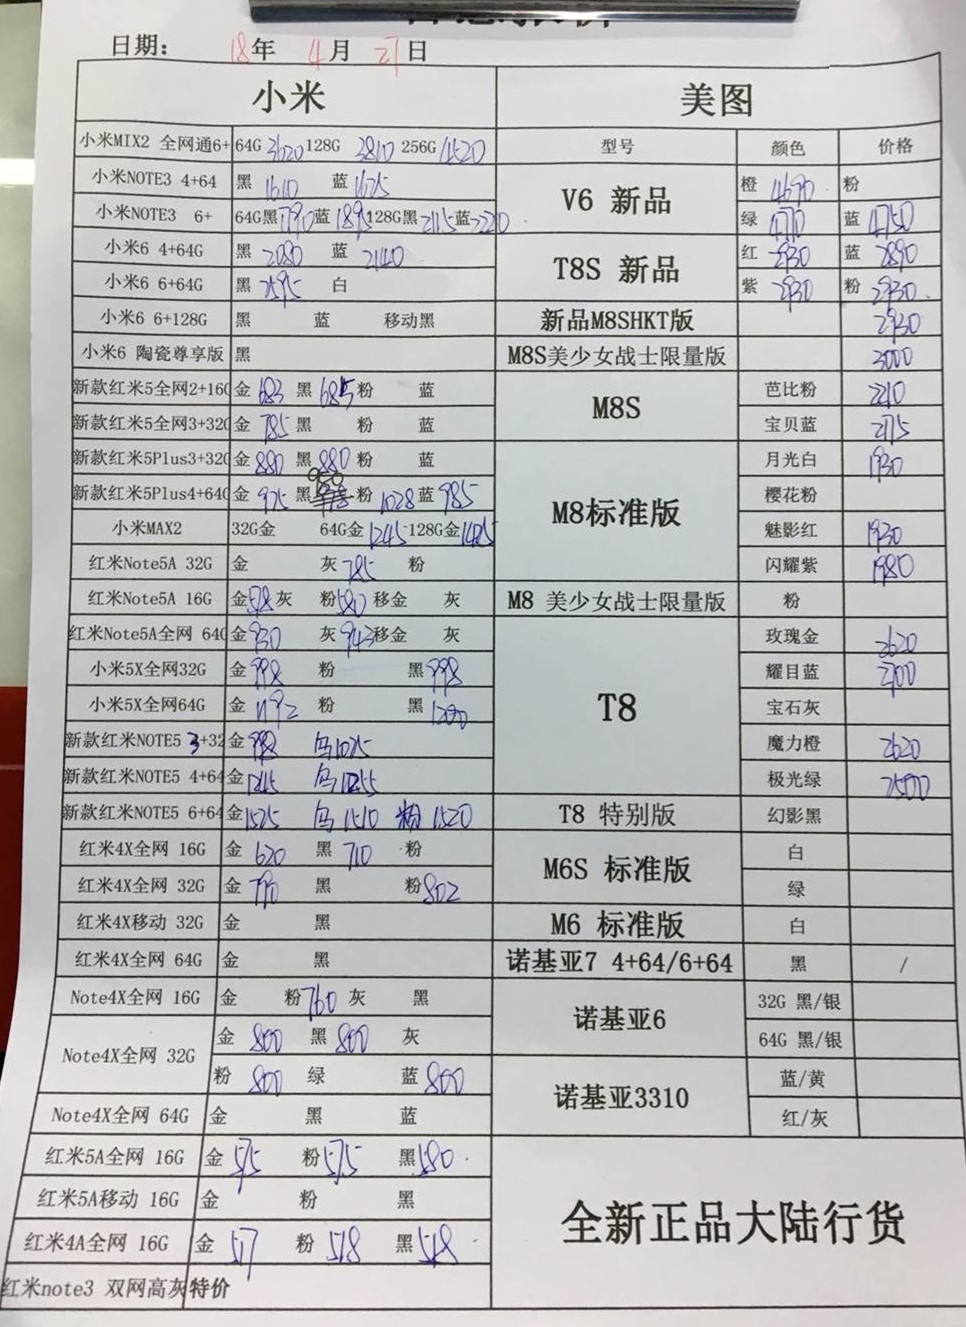 日期: 18年 4月 27日
小米 美图
小米MIX2 全网通6+ 64G 3620 128G 3810 256G 4520 型号 颜色 价格
小米NOTE3 4+64 黑 1610 蓝 1675 V6 新品 橙 4690 粉
小米NOTE3 6+ 64G黑 1790 蓝 1895 128G黑 2115 蓝 2220 绿 4770 蓝 4750
小米6 4+64G 黑 2080 蓝 2140 T8S 新品 红 2930 蓝 2890
小米6 6+64G 黑 2595 白 紫 2930 粉 2930
小米6 6+128G 黑 蓝 移动黑 新品M8SHKT版 2930
小米6 陶瓷尊享版 黑 M8S美少女战士限量版 3000
新款红米5全网2+16G 金 683 黑 685 粉 蓝 M8S 芭比粉 2210
新款红米5全网3+32G 金 785 黑 粉 蓝 宝贝蓝 2175
新款红米5Plus3+32G 金 880 黑 880 粉 蓝 M8标准版 月光白 1930
新款红米5Plus4+64G 金 975 黑 950 粉 1028 蓝 985 樱花粉
小米MAX2 32G金 64G金 1245 128G金 1425 魅影红 1930
红米Note5A 32G 金 灰 785 粉 闪耀紫 1980
红米Note5A 16G 金 578 灰 粉 580 移金 灰 M8 美少女战士限量版 粉
红米Note5A全网 64G 金 930 灰 943 移金 灰 T8 玫瑰金 2620
小米5X全网32G 金 998 粉 黑 998 耀目蓝 2700
小米5X全网64G 金 1192 粉 黑 1200 宝石灰
新款红米NOTE5 3+32 金 998 乌 1025 魔力橙 2620
新款红米NOTE5 4+64 金 1245 乌 1255 极光绿 2500
新款红米NOTE5 6+64 金 1525 乌 1510 粉 1520 T8 特别版 幻影黑
红米4X全网 16G 金 620 黑 710 粉 M6S 标准版 白
红米4X全网 32G 金 790 黑 粉 802 绿
红米4X移动 32G 金 黑 M6 标准版 白
红米4X全网 64G 金 黑 诺基亚7 4+64/6+64 黑 /
Note4X全网 16G 金 粉 760 灰 黑 诺基亚6 32G 黑/银
Note4X全网 32G 金 800 黑 800 灰 64G 黑/银
粉 800 绿 蓝 800 诺基亚3310 蓝/黄
Note4X全网 64G 金 黑 蓝 红/灰
红米5A全网 16G 金 575 粉 575 黑 580
红米5A移动 16G 金 粉 黑 全新正品大陆行货
红米4A全网 16G 金 517 粉 518 黑 518
红米note3 双网高灰 特价